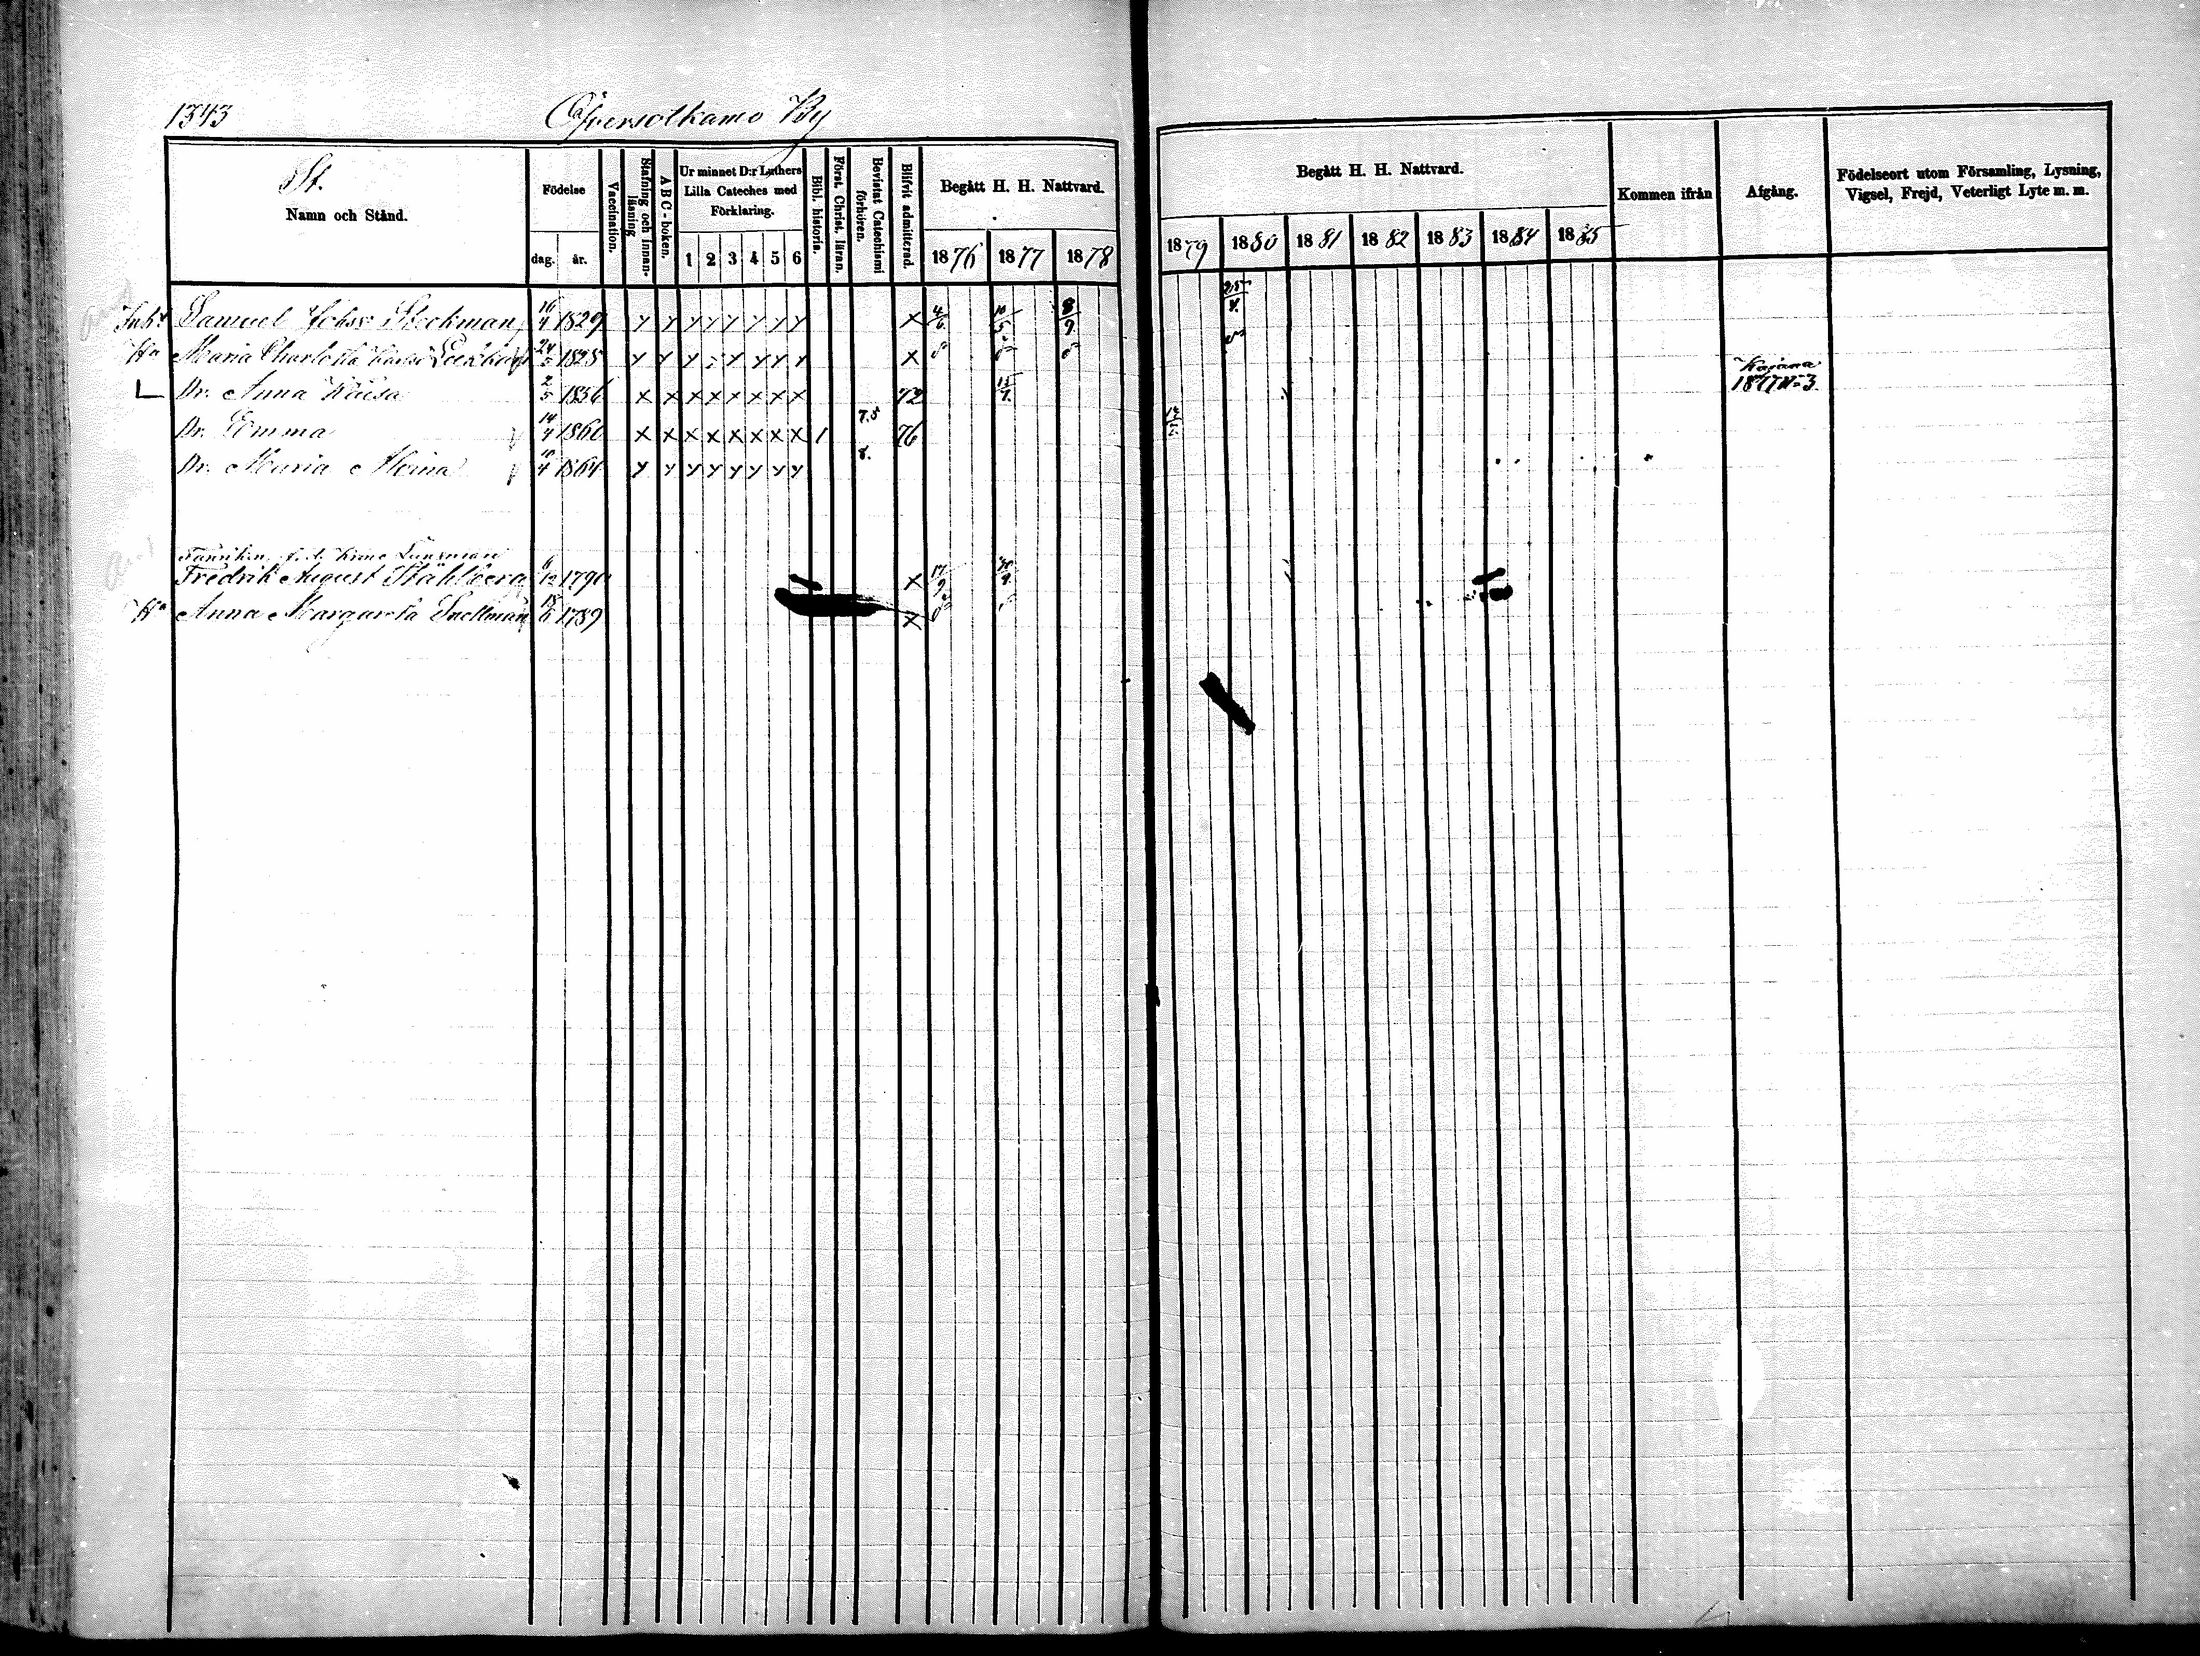 1343 Öfversotkamo By
St.
Namn och Stånd.
Födelse
dag. år.
Vaccination.
Stafning och innanläsning
ABC-boken.
Ur minnet D:r Luthers Lilla Cateches med Förklaring.
1 2 3 4 5 6
Bibl. historia.
Först. Christ. läran.
Bevistat Catechismi förhören.
Blifvit admitterad.
Begått H. H. Nattvard.
1876 1877 1878
Begått H. H. Nattvard.
1879 1880 1881 1882 1883 1884 1885
Kommen ifrån
Afgång.
Födelseort utom Församling, Lysning, Vigsel, Frejd, Veterligt Lyte m. m.
Inh. Samuel Johss Steckman 16/4 1829 y y y y y y y y x 4/6 10/5 8/9 25/4
Hu Maria Charlotta 24/5 1828 y y y y y y y x
Dr. Anna Kaisa 2/5 1856 x x x x x x x x 72 Kajana 1877 N:o 3.
Dr. Emma 14/4 1860 x x x x x x x x 1 7.8 76
Dr. Maria 4 1864 y y y y y y y y 8.
Länsman
Fredrik August Ståhlberg 6/12 1790 x 17/9
Hu Anna Margareta Snellman 1789 x